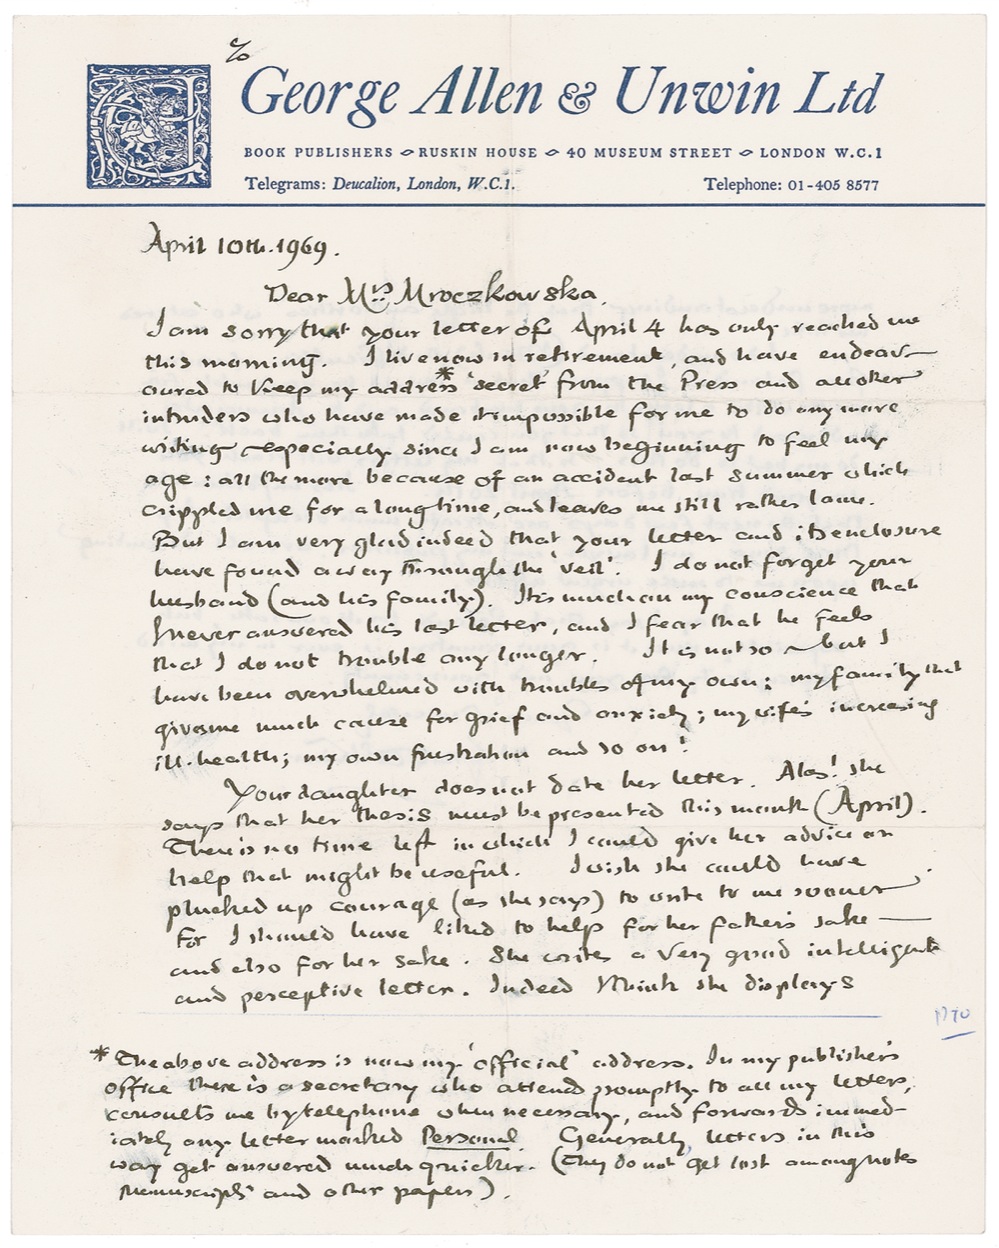 c/o
George Allen & Unwin Ltd
BOOK PUBLISHERS RUSKIN HOUSE 40 MUSEUM STREET LONDON W.C.1
Telegrams: Deucalion, London, W.C.1. Telephone: 01-405 8577
April 10th. 1969.
Dear Mrs Mroczkowska,
I am sorry that your letter of April 4 has only reached me
this morning. I live now in retirement, and have endeav-
oured to keep my address* 'secret' from the Press and all other
intruders who have made it impossible for me to do any more
writing especially since I am now beginning to feel my
age: all the more because of an accident last summer which
crippled me for a long time, and leaves me still rather lame.
But I am very glad indeed that your letter and its enclosure
have found a way through the 'veil'. I do not forget your
husband (and his family). It is much on my conscience that
I never answered his last letter, and I fear that he feels
that I do not trouble any longer. It is not so ~ but I
have been overwhelmed with troubles of my own: my family that
gives me much cause for grief and anxiety; my wife's increasing
ill-health; my own frustration and so on!
Your daughter does not date her letter. Alas! she
says that her thesis must be presented this month (April).
There is no time left in which I could give her advice or
help that might be useful. I wish she could have
plucked up courage (as she says) to write to me sooner.
For I should have liked to help for her father's sake —
and also for her sake. She writes a very good intelligent
and perceptive letter. Indeed I think she displays
PTO
* The above address is now my 'official' address. In my publisher's
office there is a secretary who attends promptly to all my letters,
consults me by telephone when necessary, and forwards immed-
iately any letter marked Personal. Generally, letters in this
way get answered much quicker. (They do not get lost among notes
manuscripts and other papers).